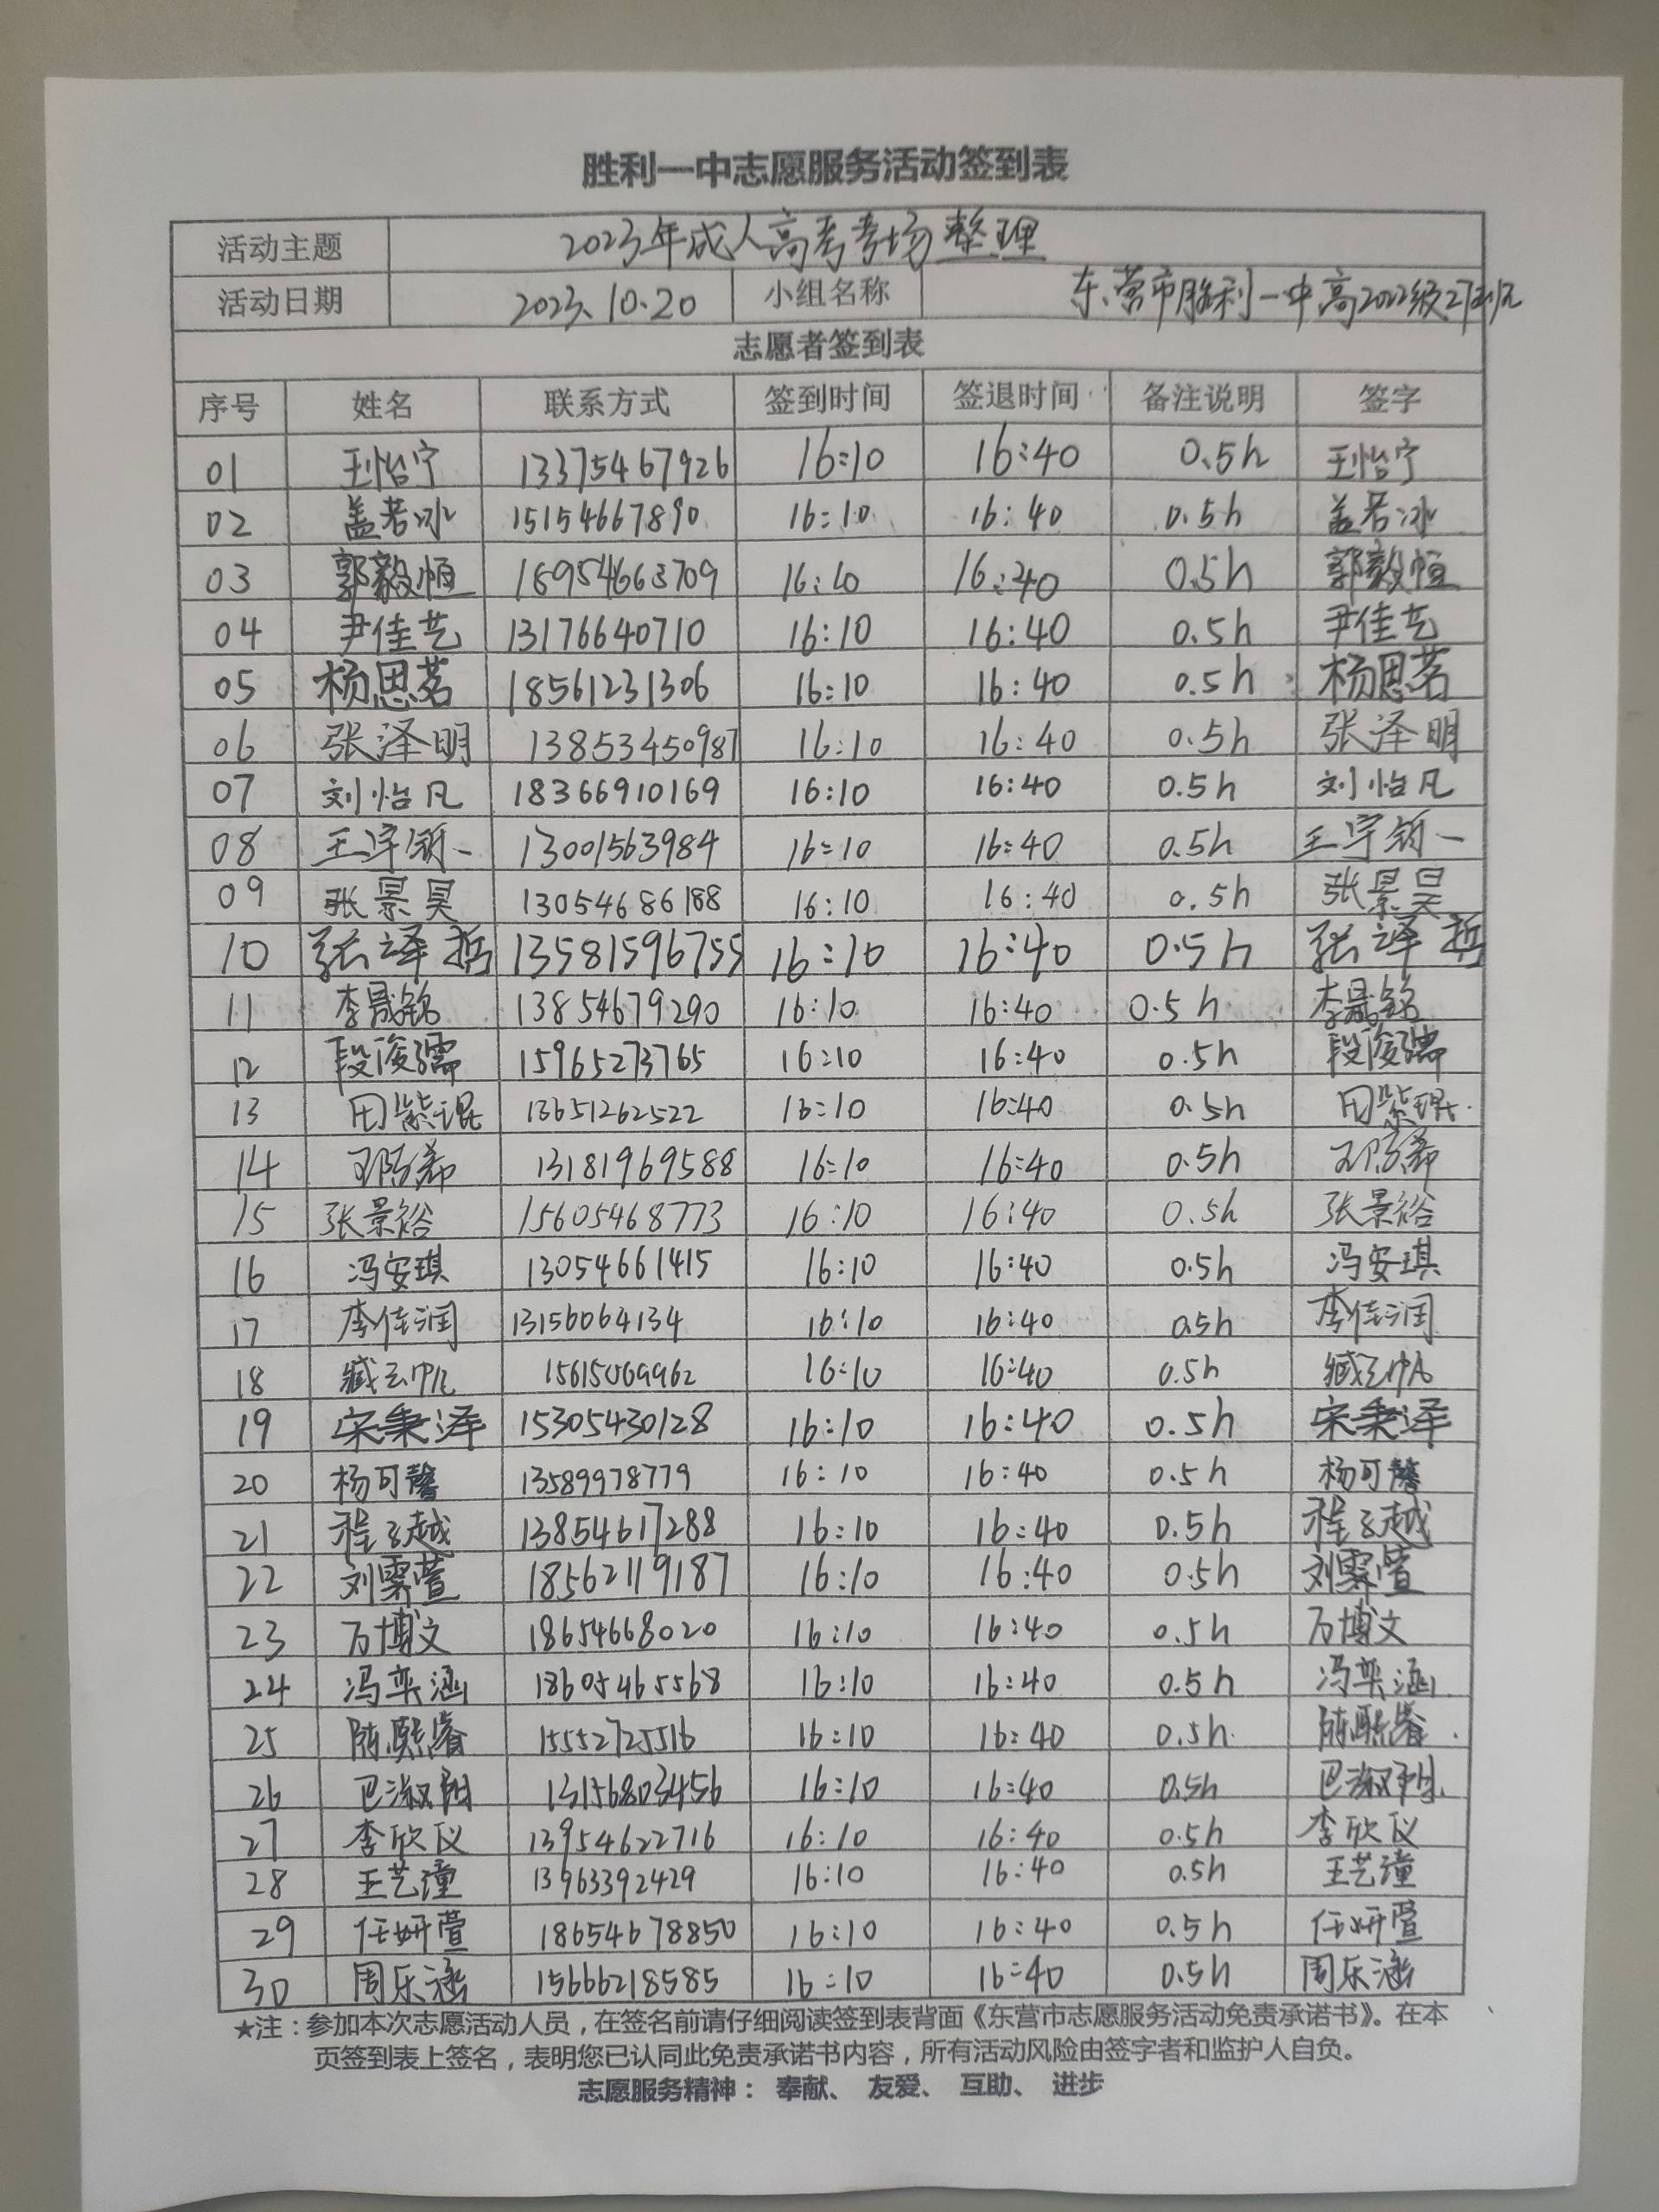 胜利一中志愿服务活动签到表
活动主题 2023年成人高考考场整理
活动日期 2023.10.20 小组名称 东营市胜利一中高2022级27班
志愿者签到表
序号 姓名 联系方式 签到时间 签退时间 备注说明 签字
01 王怡宁 13375467926 16:10 16:40 0.5h 王怡宁
02 盖若冰 15154667890 16:10 16:40 0.5h 盖若冰
03 郭毅恒 18954663709 16:10 16:40 0.5h 郭毅恒
04 尹佳艺 13176640710 16:10 16:40 0.5h 尹佳艺
05 杨思茗 18561231306 16:10 16:40 0.5h 杨思茗
06 张泽明 13853450987 16:10 16:40 0.5h 张泽明
07 刘怡凡 18366910169 16:10 16:40 0.5h 刘怡凡
08 13001563984 16:10 16:40 0.5h
09 张景昊 13054686188 16:10 16:40 0.5h 张景昊
10 张译哲 13581596755 16:10 16:40 0.5h 张译哲
11 李晟铭 13854679290 16:10 16:40 0.5h 李晟铭
12 段俊孺 15965273765 16:10 16:40 0.5h 段俊孺
13 田紫琨 13651262522 16:10 16:40 0.5h 田紫琨
14 13181969588 16:10 16:40 0.5h
15 张景裕 15605468773 16:10 16:40 0.5h 张景裕
16 冯安琪 13054661415 16:10 16:40 0.5h 冯安琪
17 李佳润 13156064134 16:10 16:40 0.5h 李佳润
18 臧云帆 15615069962 16:10 16:40 0.5h 臧云帆
19 宋秉泽 15305430128 16:10 16:40 0.5h 宋秉泽
20 杨可馨 13589978779 16:10 16:40 0.5h 杨可馨
21 程云越 13854617288 16:10 16:40 0.5h 程云越
22 刘霖萱 18562119187 16:10 16:40 0.5h 刘霖萱
23 万博文 18654668020 16:10 16:40 0.5h 万博文
24 冯奕涵 18605465568 16:10 16:40 0.5h 冯奕涵
25 陈熙睿 15552725516 16:10 16:40 0.5h 陈熙睿
26 13156803456 16:10 16:40 0.5h
27 李欣仪 13954622716 16:10 16:40 0.5h 李欣仪
28 王艺潼 13963392429 16:10 16:40 0.5h 王艺潼
29 任妍萱 18654678850 16:10 16:40 0.5h 任妍萱
30 周乐涵 15666218585 16:10 16:40 0.5h 周乐涵
★注：参加本次志愿活动人员，在签名前请仔细阅读签到表背面《东营市志愿服务活动免责承诺书》。在本
页签到表上签名，表明您已认同此免责承诺书内容，所有活动风险由签字者和监护人自负。
志愿服务精神： 奉献、 友爱、 互助、 进步